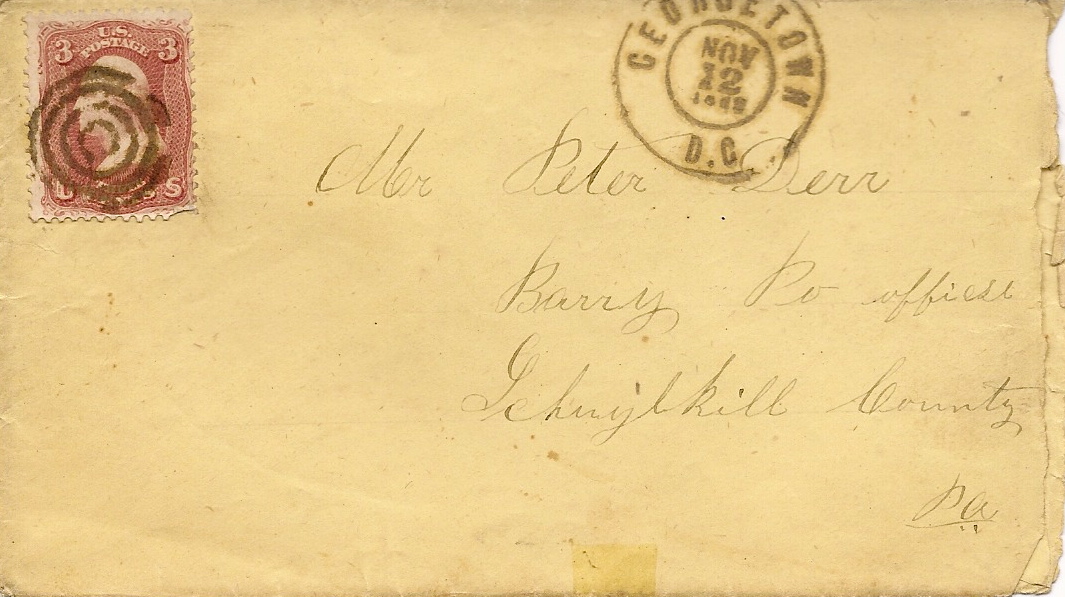 U.S.
POSTAGE
3 3
U S
GEORGETOWN
NOV
12
1862
D.C.
Mr Peter Derr
Barry Po offiest
Schuylkill County
Pa